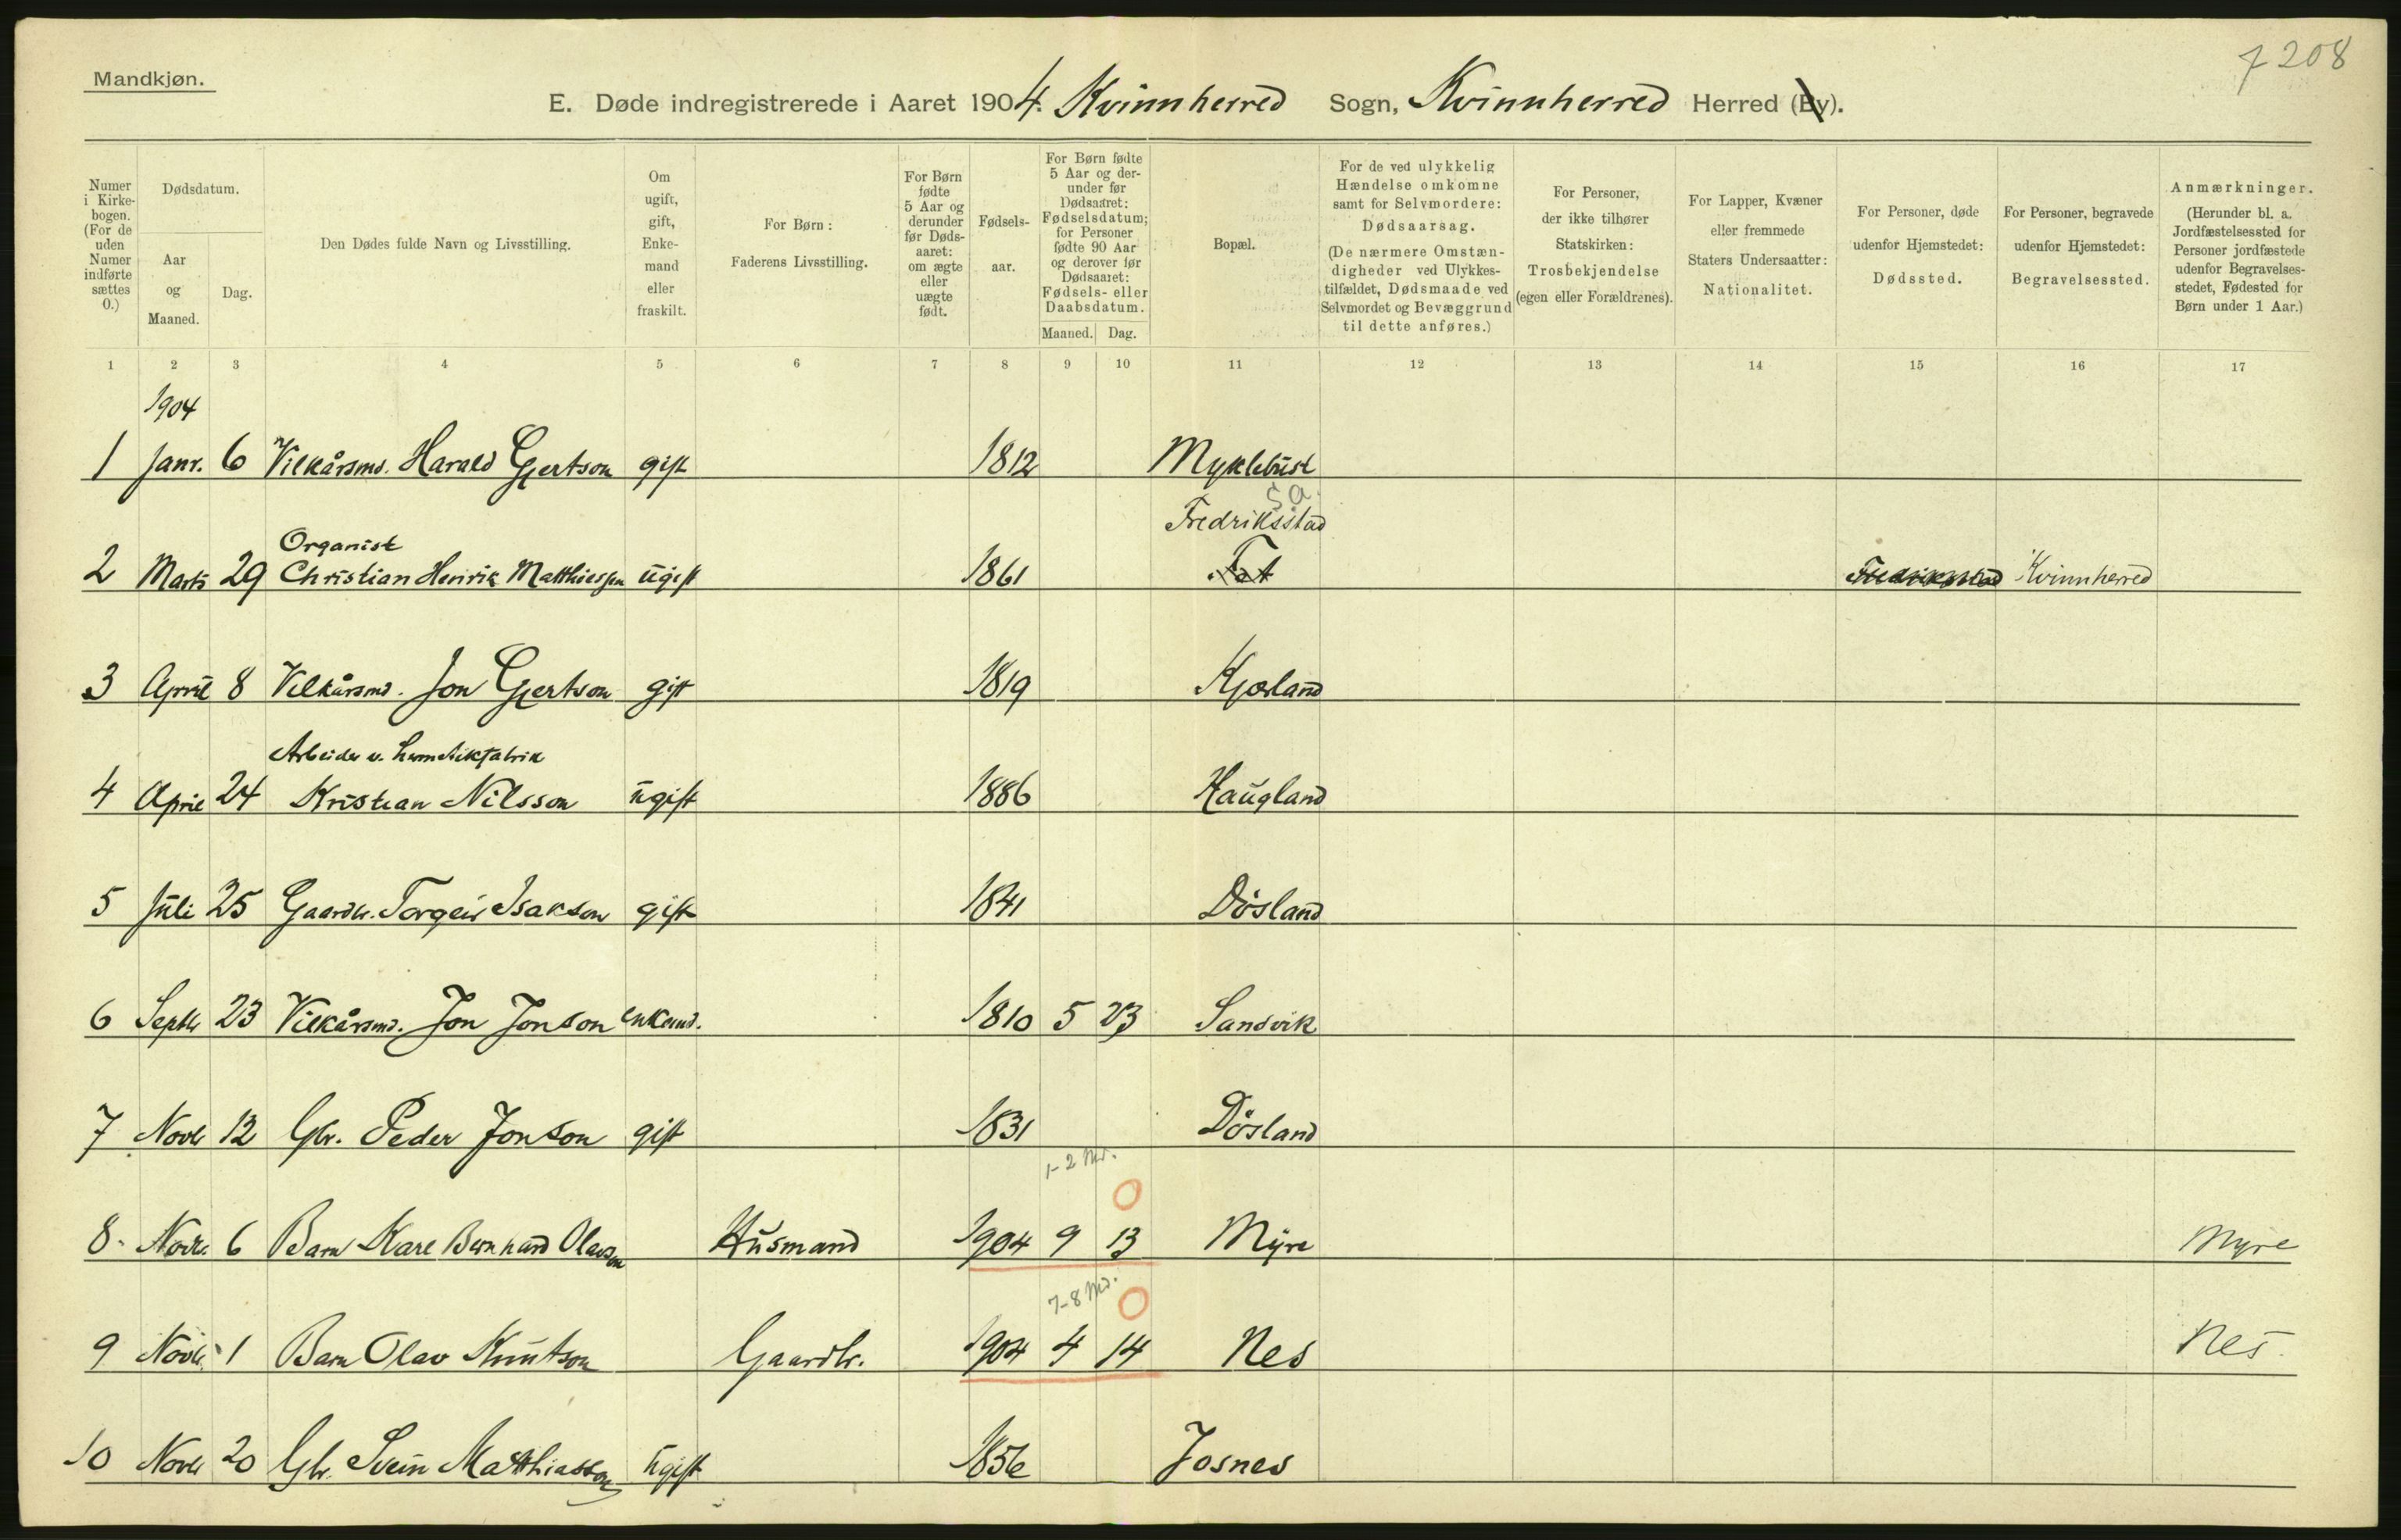 7 208
Mandkjøn.
E. Døde indregistrerede i Aaret 1904. Kvinnherred Sogn, Kvinnherred Herred (By).
Numer i Kirke-bogen. (For de uden Numer indførte sættes 0.)
Dødsdatum.
Aar og Maaned.
Dag.
Den Dødes fulde Navn og Livsstilling.
Om ugift, gift, Enke-mand eller fraskilt.
For Børn: Faderens Livsstilling.
For Børn fødte 5 Aar og derunder før Døds-aaret: om ægte eller uægte født.
Fødsels-aar.
For Børn fødte 5 Aar og der-under før Dødsaaret: Fødselsdatum; for Personer fødte 90 Aar og derover før Dødsaaret: Fødsels- eller Daabsdatum.
Maaned. Dag.
Bopæl.
For de ved ulykkelig Hændelse omkomne samt for Selvmordere: Dødsaarsag. (De nærmere Omstæn-digheder ved Ulykkes-tilfældet, Dødsmaade ved Selvmordet og Bevæggrund til dette anføres.)
For Personer, der ikke tilhører Statskirken: Trosbekjendelse (egen eller Forældrenes).
For Lapper, Kvæner eller fremmede Staters Undersaatter: Nationalitet.
For Personer, døde udenfor Hjemstedet: Dødssted.
For Personer, begravede udenfor Hjemstedet: Begravelsessted.
Anmærkninger. (Herunder bl. a. Jordfæstelsessted for Personer jordfæstede udenfor Begravelses-stedet, Fødested for Børn under 1 Aar.)
1 2 3 4 5 6 7 8 9 10 11 12 13 14 15 16 17
1904
1 Janr. 6 Vilkårsmd. Harald Gjertson gift 1812 Myklebust
Fredriksstad
Organist
2 Marts 29 Christian Henrik Matthiessen ugift 1861 Tat Fredriksstad Kvinnherred
3 April 8 Vilkårsmd. Jon Gjertson gift 1819 Kjærland
Arbeider v. hermetikfabrik
4 April 24 Kristian Nilsson ugift 1886 Haugland
5 Juli 25 Gaardbr. Torgeir Isakson gift 1841 Døsland
6 Septbr 23 Vilkårsmd. Jon Jonson enkemd. 1810 5 23 Sandvik
7 Novbr 12 Gbr. Peder Jonson gift 1831 Døsland
1-2 Md.
0
8 Novbr. 6 Barn Kare Bernhard Olavson Husmand 1904 9 13 Myre Myre
7-8 Md.
0
9 Novbr. 1 Barn Olav Knutson Gaardbr. 1904 4 14 Nes Nes
10 Novbr 20 Gbr. Svein Matthiasson ugift 1856 Josnes